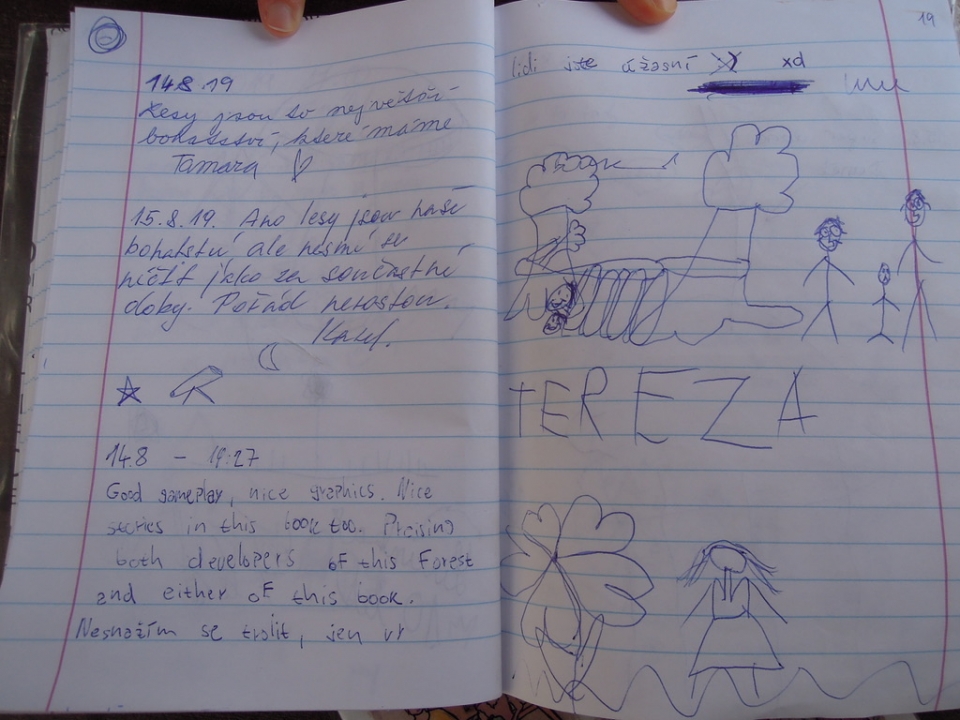 14.8.19
Lesy jsou to největší
bohatství, které máme
Tamara
15.8.19. Ano lesy jsou naše
bohatství ale nesmí se
ničit jako za současné
doby. Pořád nerostou.
Karel.
14.8 - 19:27
Good gameplay, nice graphics. Nice
stories in this book too. Praising
both developers of this Forest
and either of this book.
Nesnažím se trolit, jen vr
19
lidi jste úžasní xd
TEREZA